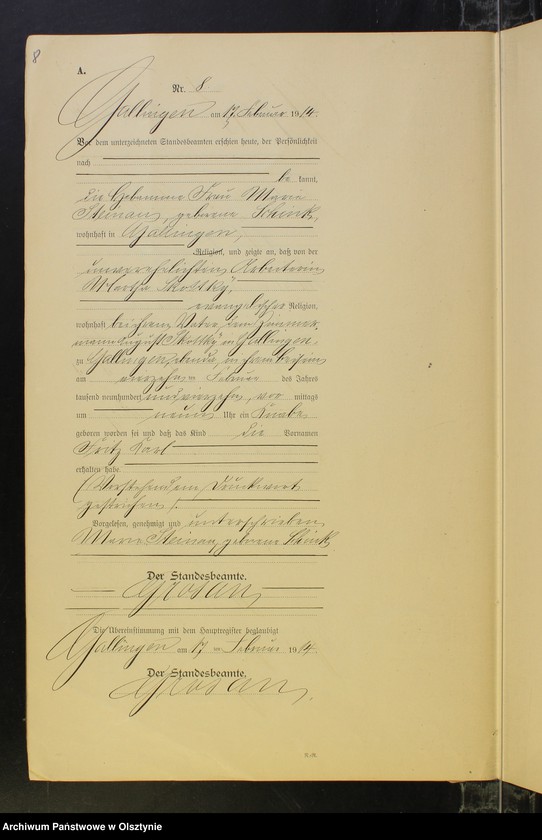 8
A.
Nr. 8
Gallingen am 17. Februar 1914.
Vor dem unterzeichneten Standesbeamten erschien heute, der Persönlichkeit
nach
be kannt,
die Hebamme Frau Marie
Steinau, geborene Schink,
wohnhaft in Gallingen,
Religion, und zeigte an, daß von der
unverehelichten Arbeiterin
Martha Skottky,
evangelischer Religion,
wohnhaft bei ihrem Vater, dem
August Skottky in Gallingen,
zu Gallingen, ebenda, in
am vierzehnten Februar des Jahres
tausend neunhundert und vierzehn, vor mittags
um neun Uhr ein Knabe
geboren worden sei und daß das Kind die Vornamen
Fritz Karl
erhalten habe.
(Vorstehend ein Druckwort
gestrichen).
Vorgelesen, genehmigt und unterschrieben
Marie Steinau, geborene Schink.
Der Standesbeamte.
Die Übereinstimmung mit dem Hauptregister beglaubigt
Gallingen am 17 ten Februar 1914.
Der Standesbeamte.
Archiwum Państwowe w Olsztynie